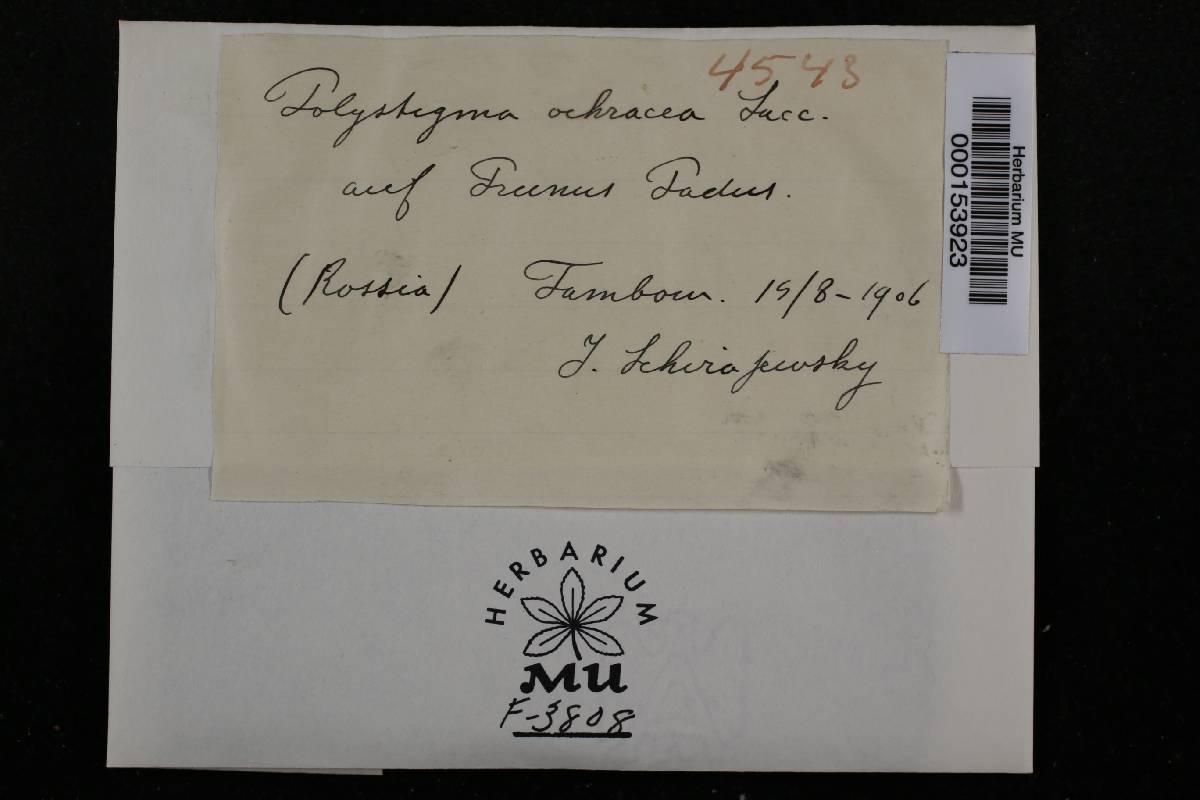 4543
Polystigma ochracea Sacc.
auf Prunus Padus.
(Rossia) Tambow. 19/8-1906
J. Schirajewsky
Herbarium MU
000153923
HERBARIUM
MU
F-3808